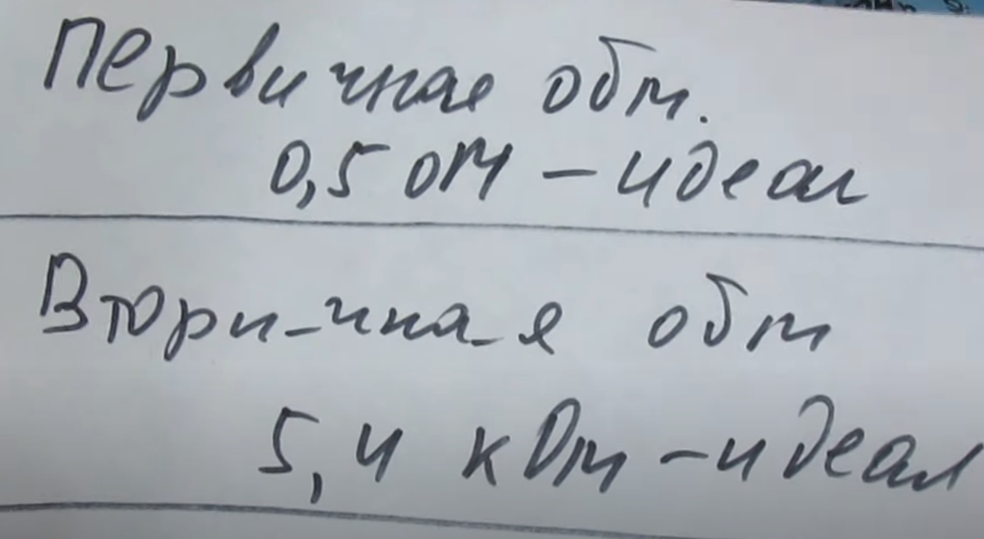 Первичная обм.
0,5 ом – идеал
Вторичная обм
5,4 кОм – идеал